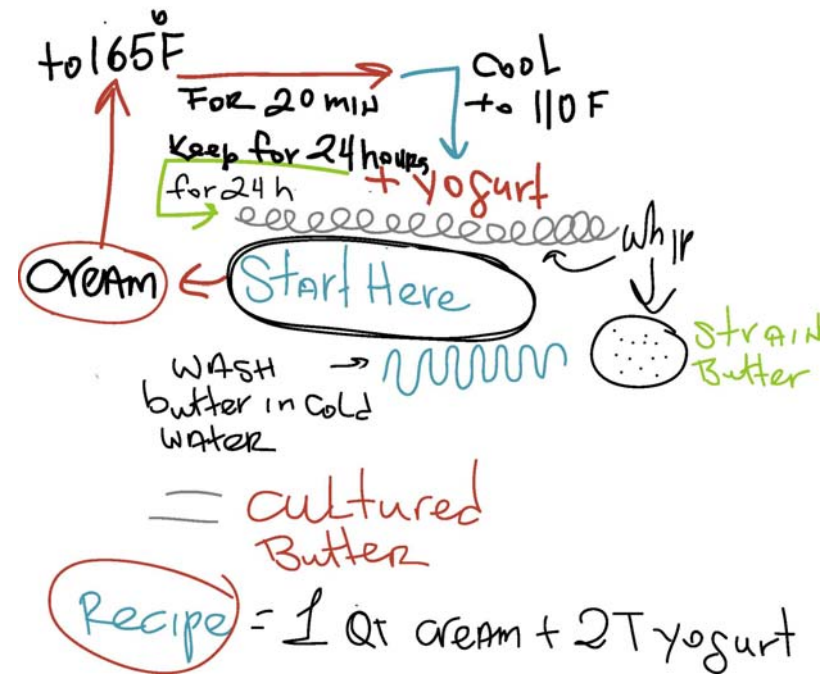 to 165°F
For 20 min
Cool
to 110 F
Keep for 24 hours,
for 24 h
+ yogurt
whip
Cream
Start Here
Strain
Butter
Wash
butter in cold
water
= Cultured
Butter
Recipe = 1 QT cream + 2T yogurt